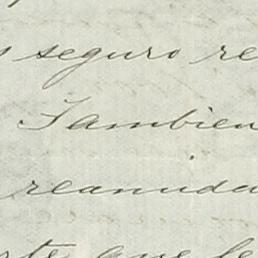 seguro re
Tambien
reanuda
rte que le